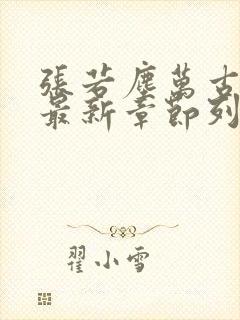 張若塵萬古
最新章節列
翟小雪